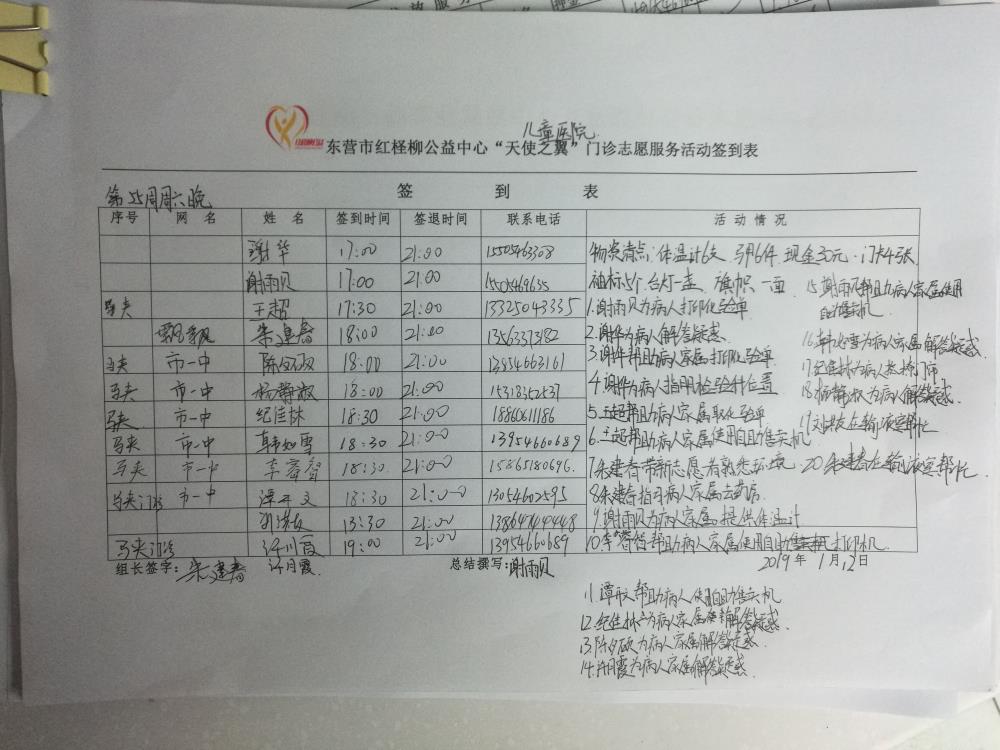 儿童医院
东营市红柽柳公益中心“天使之翼”门诊志愿服务活动签到表
签到表
第55周周六晚
序号 网名 姓名 签到时间 签退时间 联系电话 活动情况
谢华 17:00 21:00 15505463308
谢雨贝 17:00 21:00
马夹 王超 17:30 21:00 13325043335
朱建春 18:00 21:00 13563371382
马夹 市一中 18:00 21:00 13954663161
马夹 市一中 杨静淑 18:00 21:00
马夹 市一中 纪佳林 18:30 21:00 18860611186
马夹 市一中 韩如雪 18:30 21:00 13954660689
马夹 市一中 李睿智 18:30 21:00 15865180696
马夹 市一中 18:30 21:00 13054602595
刘洪波 21:00
马夹 许月霞 19:00 21:00 13954660689
物资清点:体温计6支 马甲6件 现金30元 门卡4张
袖标5个 台灯一盏 旗帜一面
1.谢雨贝为病人打印化验单
2.谢华为病人解答疑惑
3.谢华帮助病人家属打印化验单
4.谢华为病人指明检验科位置
5.王超帮助病人家属取化验单
6.王超帮助病人家属使用自助售卖机
7.朱建春带新志愿者熟悉环境
8.朱建春指引病人家属去药店
9.谢雨贝为病人家属提供体温计
10.李睿智帮助病人家属使用自助打印机
15.谢雨贝帮助病人家属使用
自助售卖机
16.韩如雪为病人家属解答疑惑
17.纪佳林为病人
18.杨静淑为病人解答疑惑
19.刘洪波在输液室帮忙
20.朱建春在输液室帮忙
组长签字:朱建春 许月霞 总结撰写:谢雨贝 2019年1月12日
11.帮助病人使用自助售卖机
12.纪佳林为病人家属解答疑惑
13.为病人家属解答疑惑
14.许月霞为病人家属解答疑惑